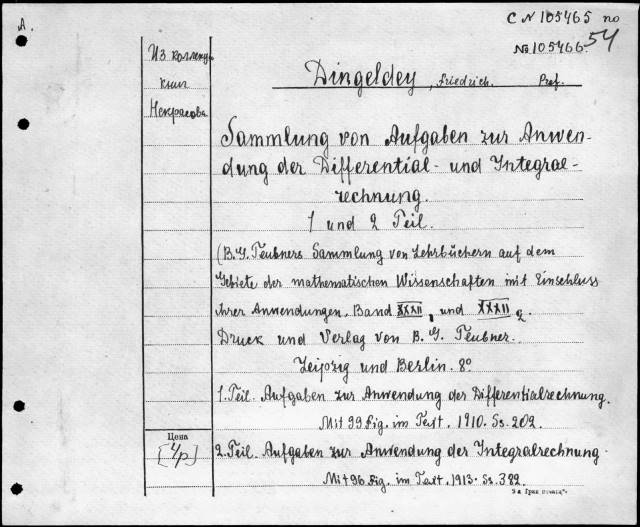 А.
С N 105465 по
№ 105466
54
Из коллекц.
книг
Некрасова
Dingeldey, Friedrich. Prof.
Sammlung von Aufgaben zur Anwen-
dung der Differential- und Integral-
rechnung.
1 und 2 Teil.
(B.G. Teubners Sammlung von Lehrbüchern auf dem
Gebiete der mathematischen Wissenschaften mit Einschluss
ihrer Anwendungen. Band XXXII 1 und XXXII 2.
Druck und Verlag von B. G. Teubner.
Leipzig und Berlin. 8°
1. Teil. Aufgaben zur Anwendung der Differentialrechnung.
Mit 99 Fig. im Text. 1910. Ss. 202.
Цена
[4 р.]
2. Teil. Aufgaben zur Anwendung der Integralrechnung.
Mit 96 Fig. im Text. 1913. Ss. 382.